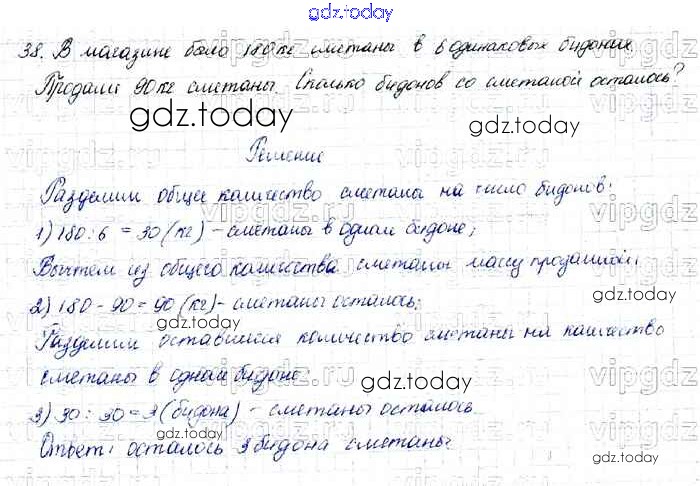 gdz.today
38. В магазине было 180 кг сметаны в 6 одинаковых бидонах.
Продали 90 кг сметаны. Сколько бидонов со сметаной осталось?
gdz.today
gdz.today
Решение
Разделим общее количество сметаны на число бидонов:
1) 180 : 6 = 30 (кг) - сметаны в одном бидоне;
Вычтем из общего количества сметаны массу проданной:
gdz.today
2) 180 - 90 = 90 (кг) - сметаны осталось;
gdz.today
Разделим оставшееся количество сметаны на количество
сметаны в одном бидоне:
gdz.today
3) 90 : 30 = 3 (бидона) - сметаны осталось.
gdz.today
Ответ: осталось 3 бидона сметаны.
gdz.today
vipgdz.ru